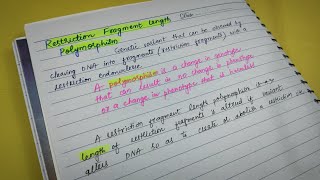 Restriction Fragment Length
Polymorphism
Genetic variant that can be assessed by
cleaving DNA into fragments (restriction fragments) with a
restriction endonuclease.
A polymorphism is a change in genotype
that can result in no change in phenotype
or a change in phenotype that is harmless
A restriction fragment length polymorphism is
length of restriction fragments is altered if variant
alters DNA so as to create or abolish a restriction